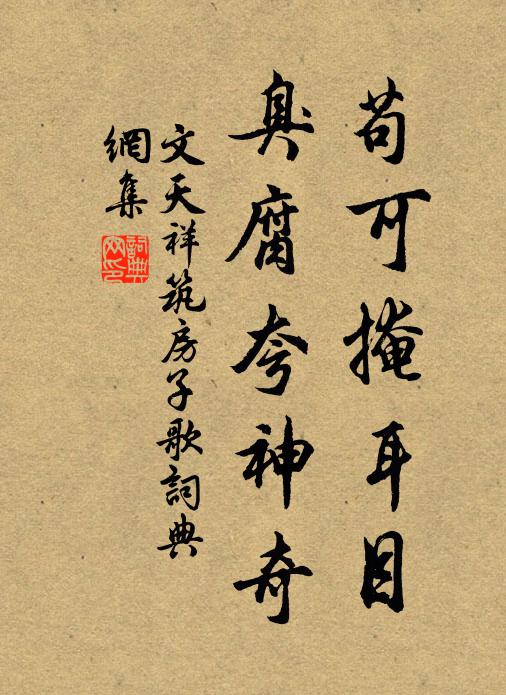 苟可掩耳目
臭腐夸神奇
文天祥筑房子歌詞典
網集
詞典网印